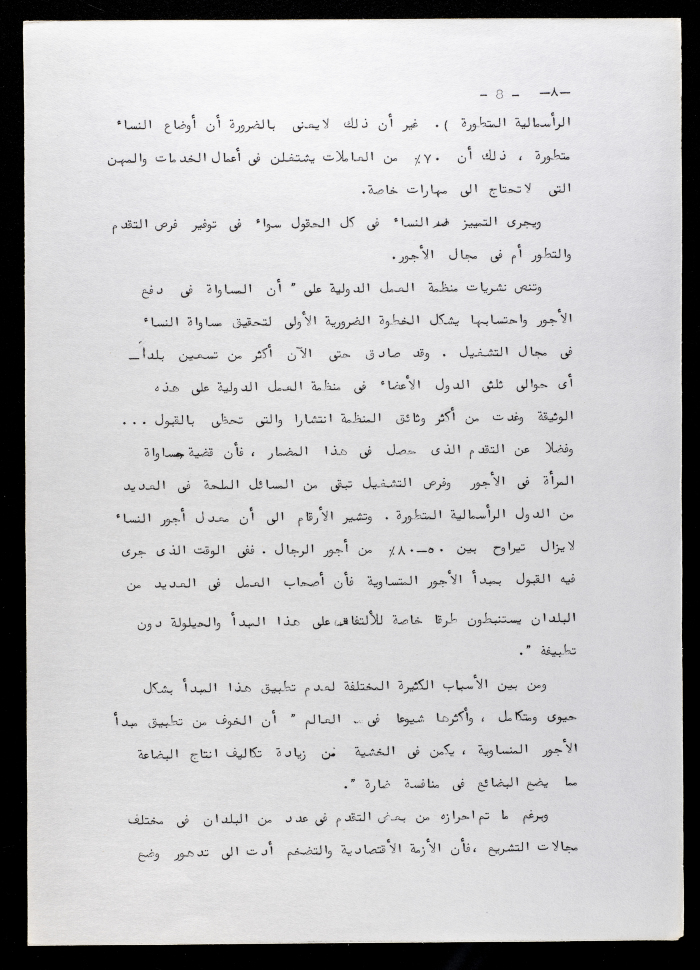 -٨- - 8 -
الرأسمالية المتطورة ). غير أن ذلك لايعنى بالضرورة أن أوضاع النساء
متطورة ، ذلك أن ٧٠٪ من العاملات يشتغلن فى أعمال الخدمات والمهن
التى لاتحتاج الى مهارات خاصة.
ويجرى التمييز ضد النساء فى كل الحقول سواء فى توفير فرص التقدم
والتطور أم فى مجال الأجور.
وتنص نشريات منظمة العمل الدولية على " أن المساواة فى دفع
الأجور واحتسابها يشكل الخطوة الضرورية الأولى لتحقيق مساواة النساء
فى مجال التشغيل . وقد صادق حتى الآن أكثر من تسعين بلداً_
أى حوالى ثلثى الدول الأعضاء فى منظمة العمل الدولية على هذه
الوثيقة وغدت من أكثر وثائق المنظمة انتشارا والتى تحظى بالقبول ...
وفضلا عن التقدم الذى حصل فى هذا المضمار ، فأن قضية مساواة
المرأة فى الأجور وفرص التشغيل تبقى من المسائل الملحة فى العديد
من الدول الرأسمالية المتطورة . وتشير الأرقام الى أن معدل أجور النساء
لايزال تيراوح بين ٥٠-٨٠٪ من أجور الرجال . ففى الوقت الذى جرى
فيه القبول بمبدأ الأجور المتساوية فأن أصحاب العمل فى العديد من
البلدان يستنبطون طرقا خاصة للألتفاف على هذا المبدأ والحيلولة دون
تطبيقة ".
ومن بين الأسباب الكثيرة المختلفة لعدم تطبيق هذا المبدأ بشكل
حيوى ومتكامل ، وأكثرها شيوعا فى العالم " أن الخوف من تطبيق مبدأ
الأجور المتساوية ، يكمن فى الخشية من زيادة تكاليف انتاج البضاعة
مما يضع البضائع فى منافسة ضارة ".
وبرغم ما تم احرازه من بعض التقدم فى عدد من البلدان فى مختلف
مجالات التشريع ،فأن الأزمة الأقتصادية والتضخم أدت الى تدهور وضع